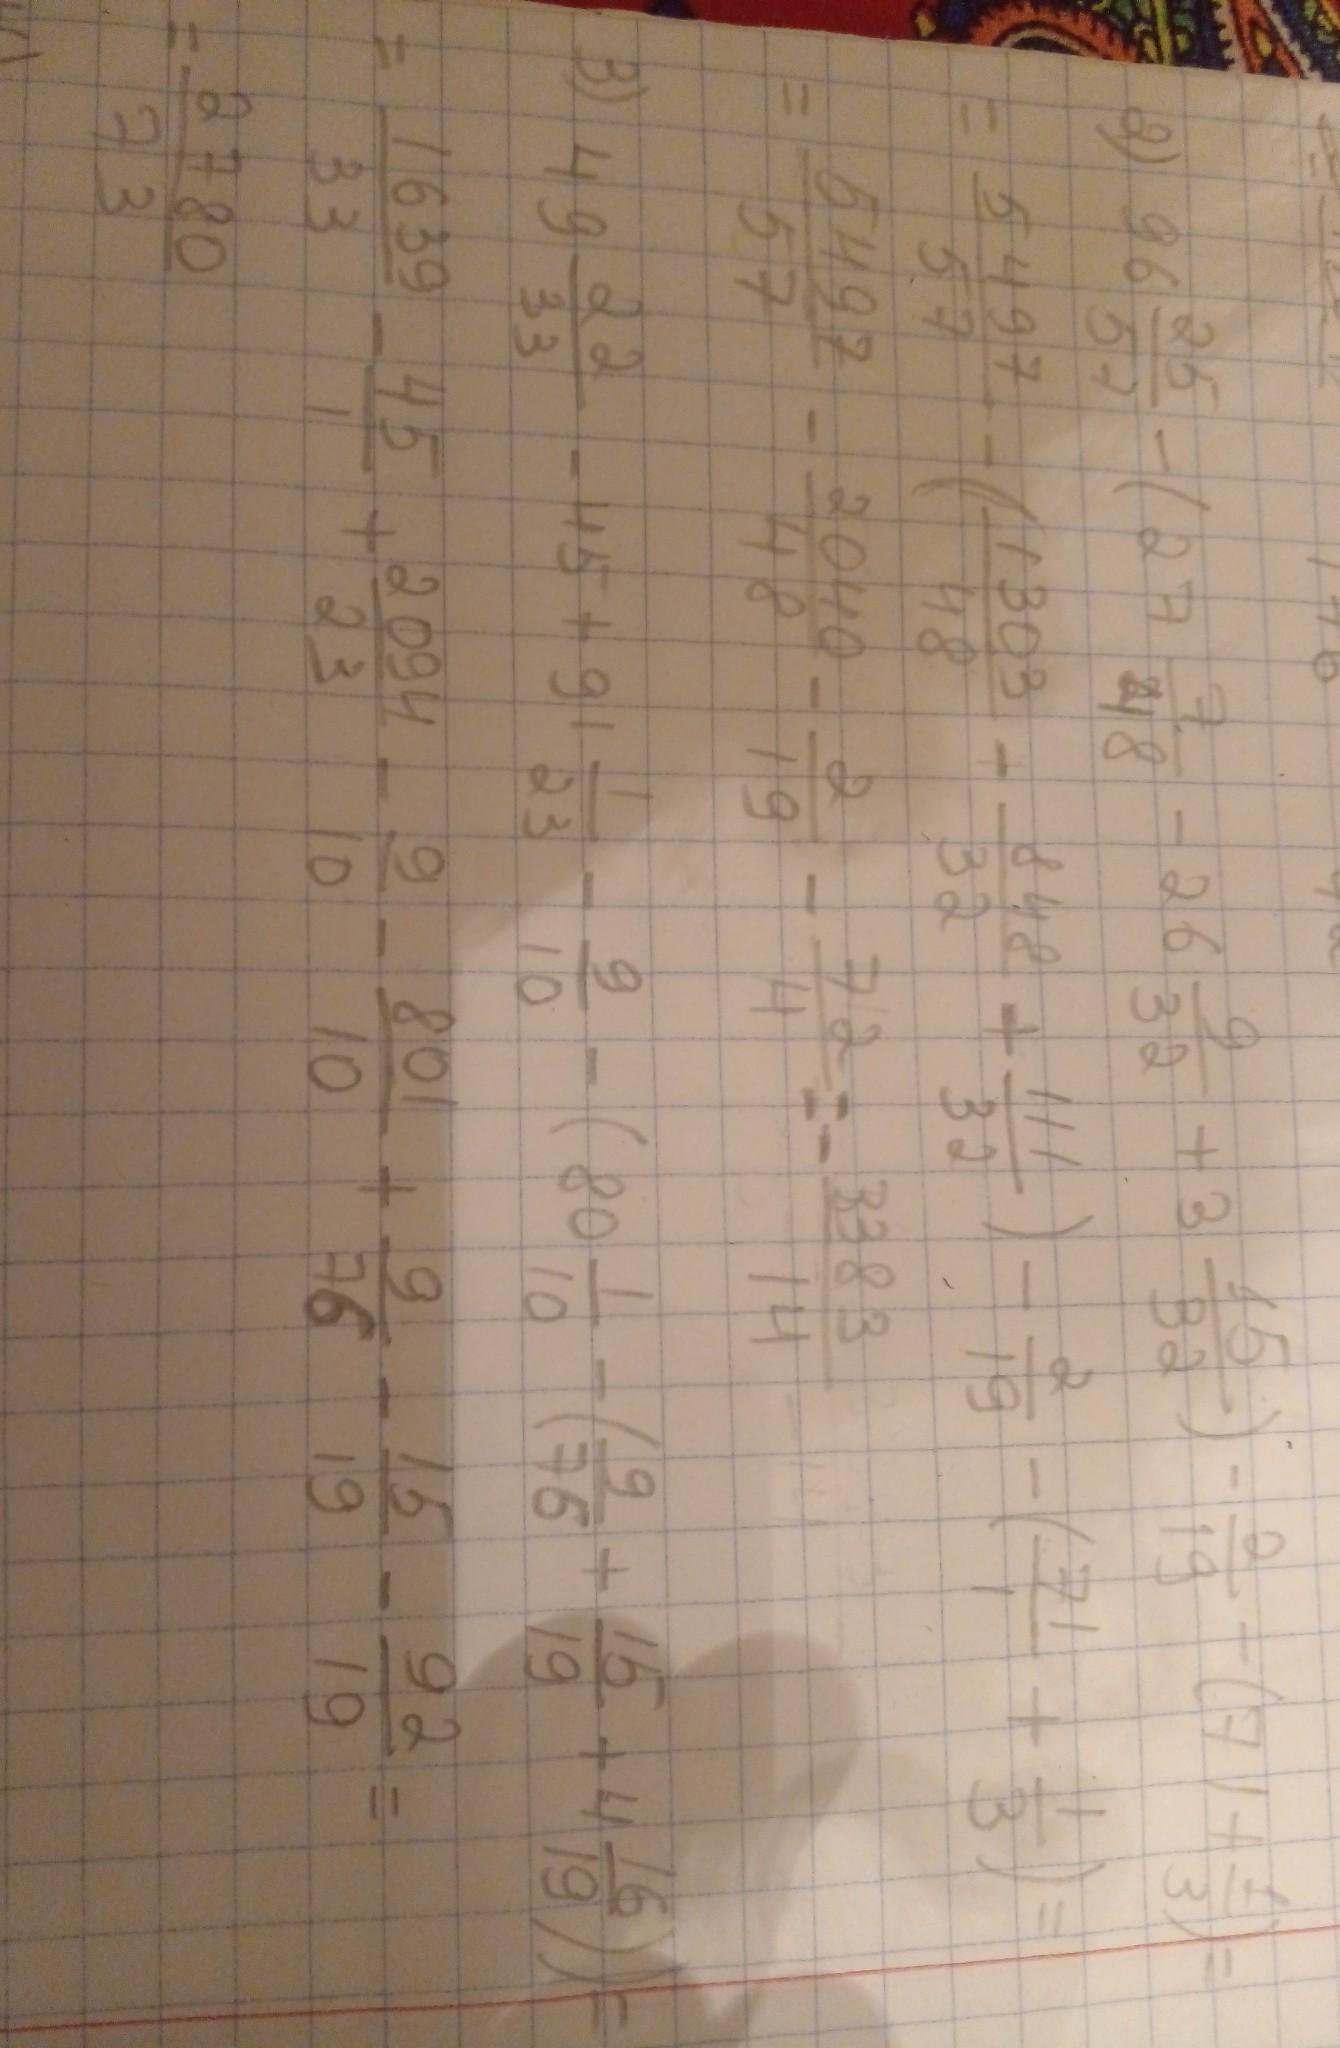 2) 96 25/57 - (27 7/48 - 26 9/32 + 3 15/32) - 2/19 - (71 + 1/3) =
= 5497/57 - (1303/48 - 848/32 + 111/32) - 2/19 - (71/1 + 1/3) =
= 5497/57 - 2040/48 - 2/19 - 72/4 = - 3383/14
3) 49 22/33 - 45 + 91 1/23 - 9/10 - (80 1/10 - (9/76 + 15/19 + 4 16/19)) =
= 1639/33 - 45/1 + 2094/23 - 9/10 - 801/10 + 9/76 - 15/19 - 92/19 =
= 2780/73